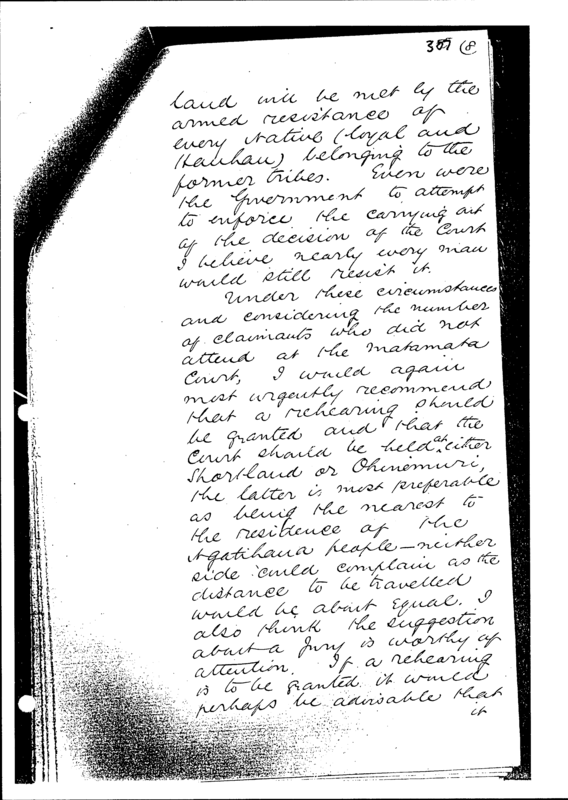 387 (8
land will be met by the
armed resistance of
every Native (loyal and
Hauhau) belonging to the
former tribes. Even were
the Government to attempt
to enforce the carrying out
of the decision of the Court
I believe nearly every man
would still resist it.
Under these circumstances
and considering the number
of claimants who did not
attend at the Matamata
Court, I would again
most urgently recommend
that a rehearing should
be granted and that the
Court should be held at either
Shortland or Ohinemuri,
the latter is most preferable
as being the nearest to
the residence of the
Ngatihaua people — neither
side could complain as the
distance to be travelled
would be about equal. I
also think the suggestion
about a Jury is worthy of
attention. If a rehearing
is to be granted it would
perhaps be advisable that
it